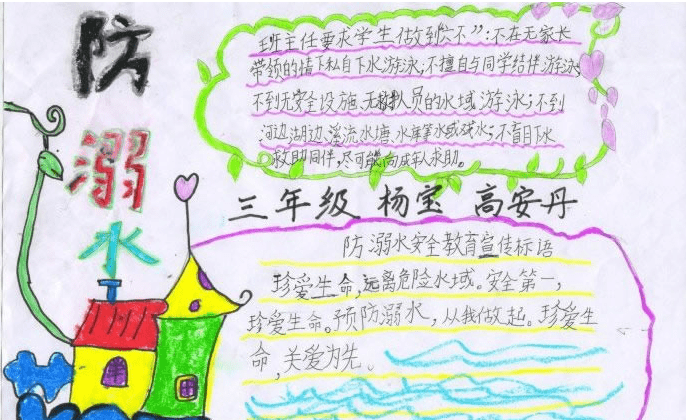 防溺水
班主任要求学生做到“六不”:不在无家长
带领的情下私自下水游泳;不擅自与同学结伴游泳
不到无安全设施、无救队人员的水域游泳;不到
河边、湖边、溪流、水塘、水库等水域戏水;不盲目下水
救助同伴,尽可能向成年人求助。
三年级 杨宝 高安丹
防溺水安全教育宣传标语
珍爱生命,远离危险水域。安全第一,
珍爱生命。预防溺水,从我做起。珍爱生
命,关爱为先。